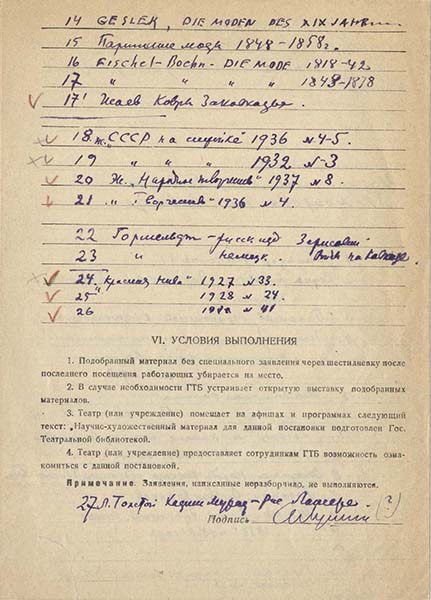 14 GESLER, DIE MODEN DES XIX JAHR
15 Парижские моды 1848-1858г.
16 Fischel-Boehn - DIE MODE 1818-42
17 " " " " 1843-1878
17' Исаев Ковры Закавказья.
18. ж. „СССР на стройке" 1936 №4-5.
19 " " " 1932 №-3
20 Ж. „Народное творчество" 1937 №8.
21 " Творчество" 1936 №4.
22 Горшельдт - русск изд
23 " немецк.
24. „Красная Нива" 1927 №33.
25 " 1928 № 24.
26
VI. УСЛОВИЯ ВЫПОЛНЕНИЯ
1. Подобранный материал без специального заявления через шестидневку после
последнего посещения работающих убирается на место.
2. В случае необходимости ГТБ устраивает открытую выставку подобранных
материалов.
3. Театр (или учреждение) помещает на афишах и программах следующий
текст: „Научно-художественный материал для данной постановки подготовлен Гос.
Театральной библиотекой.
4. Театр (или учреждение) предоставляет сотрудникам ГТБ возможность озна-
комиться с данной постановкой.
Примечание. Заявления, написанные неразборчиво, не выполняются.
27 Л. Толстой Хаджи Мурад - рис Лансере.
Подпись (?)